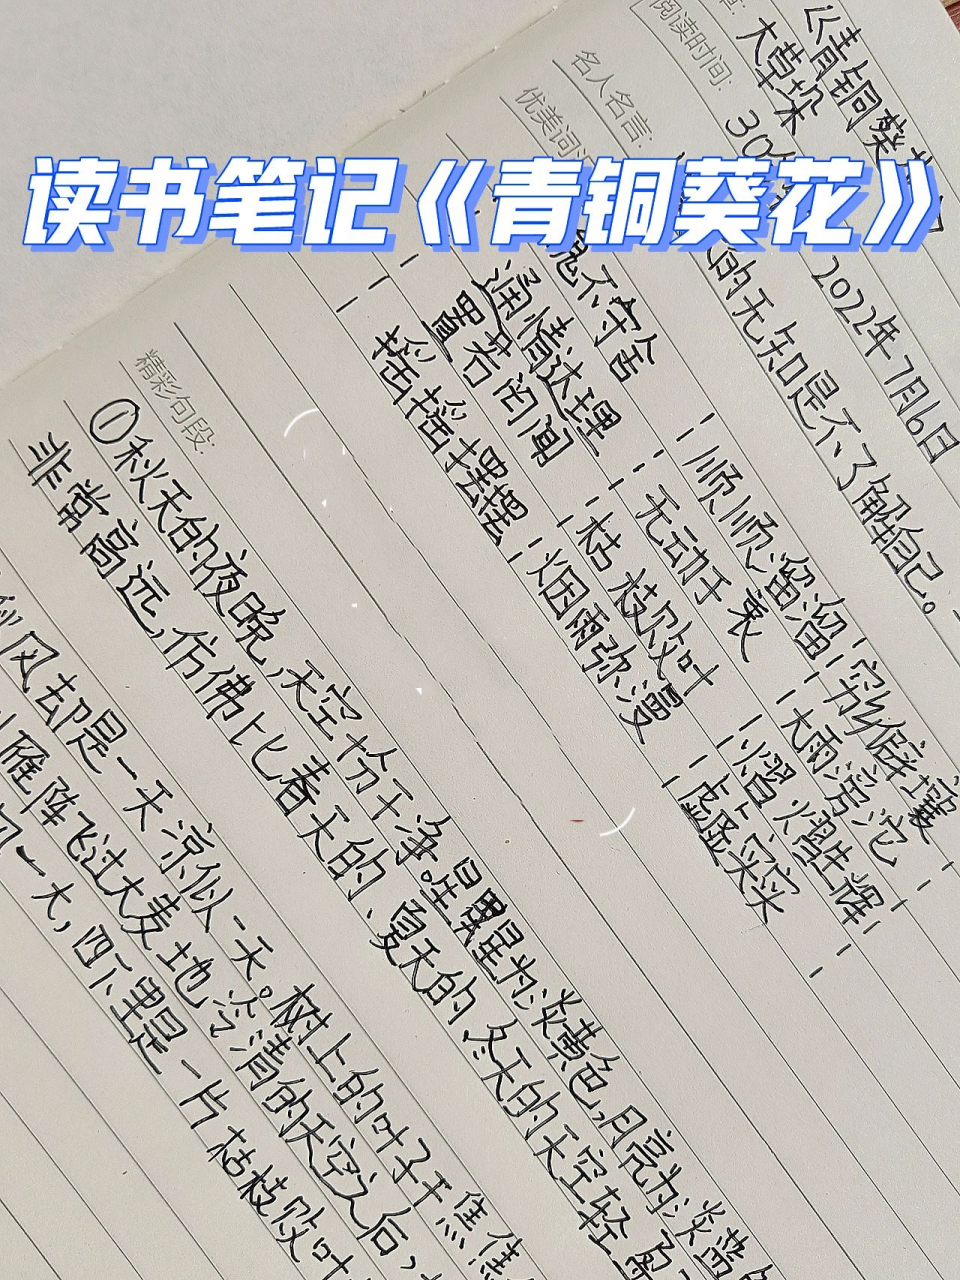 读书笔记《青铜葵花》
《青铜葵花
大草垛
阅读时间: 30 2022年7月6日
名人名言: 的无知是不了解自己。
优美词
不守舍 顺顺溜溜 穷乡僻壤
通情达理 无动于衷 大雨滂沱
置若罔闻 枯枝败叶 熠熠生辉
摇摇摆摆 烟雨弥漫 虚虚实实
精彩句段:
①秋天的夜晚,天空十份干净。星星为淡黄色,月亮为淡蓝
非常高远,仿佛比春天的、夏天的、冬天的天空轻
风却是一天凉似一天。树上的叶子干焦焦
雁阵飞过大麦地冷清的天空之后,
一大,四下里是一片枯枝败叶